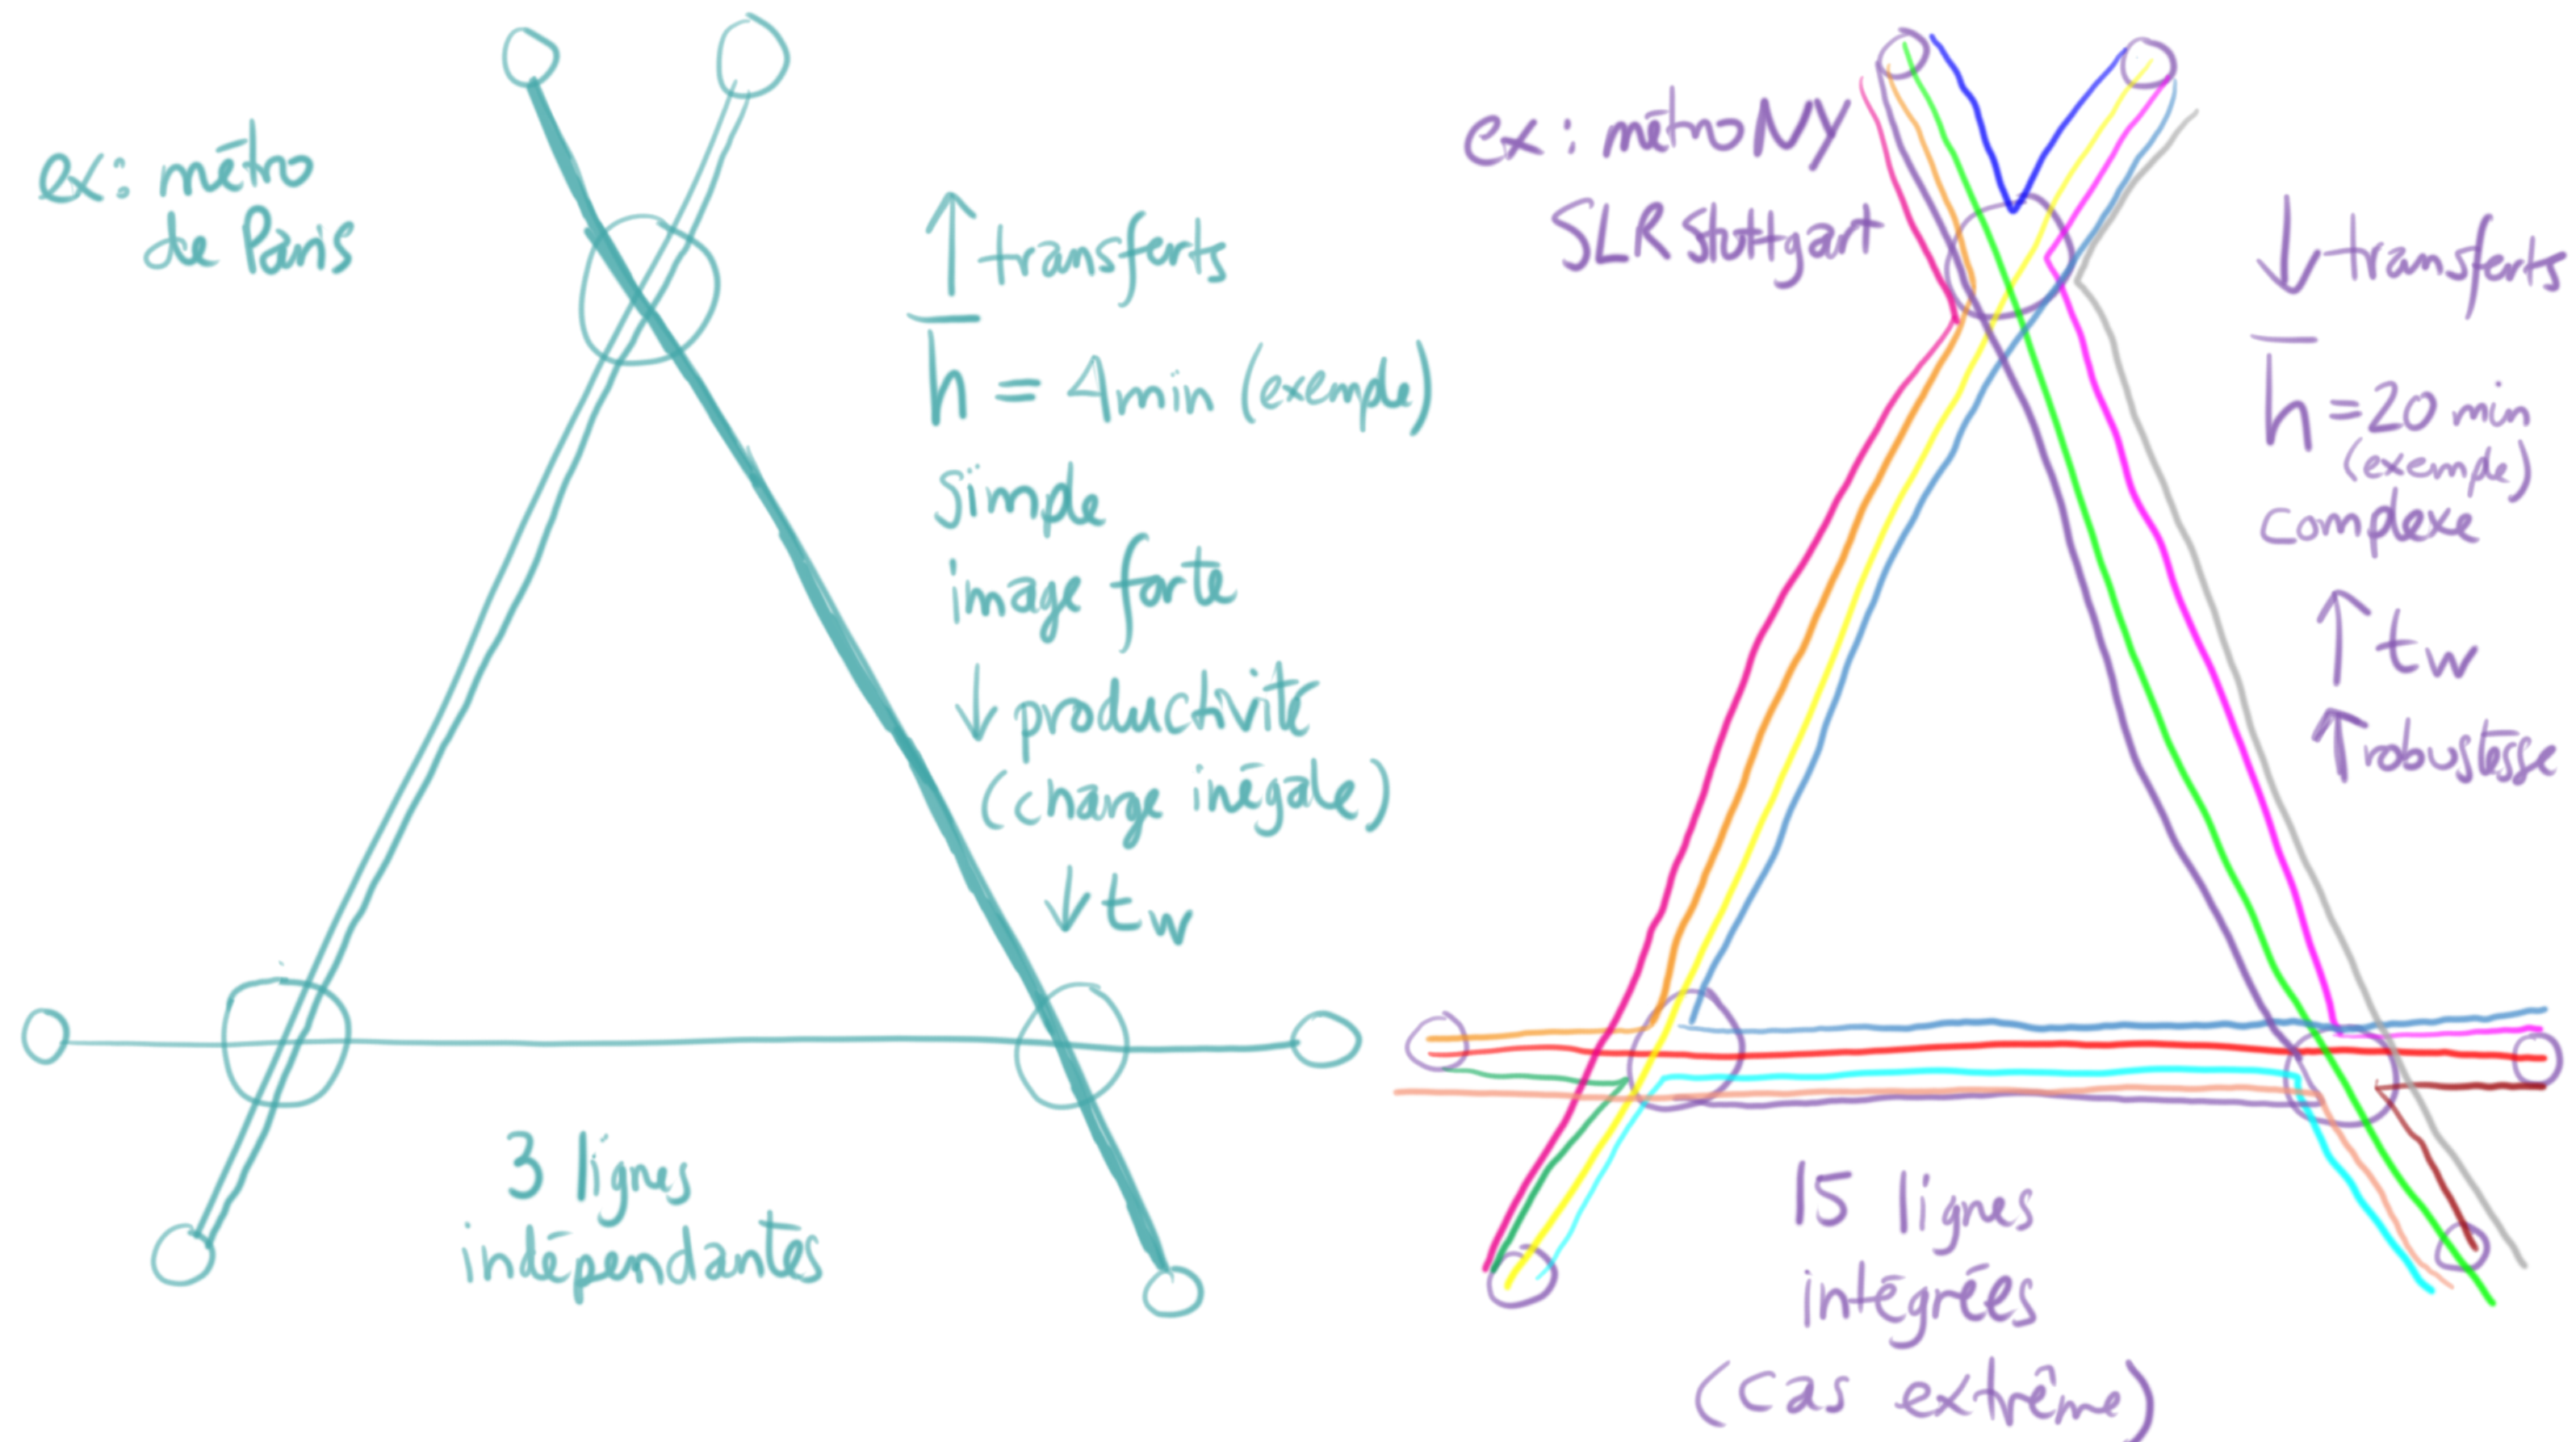 ex: métro
de Paris
↑ transferts
h̅ = 4 min (exemple)
simple
image forte
↓ productivité
(charge inégale)
↓ tw
3 lignes
indépendantes
ex: métro NY
SLR Stuttgart
↓ transferts
h̅ = 20 min
(exemple)
complexe
↑ tw
↑ robustesse
15 lignes
intégrées
(cas extrême)